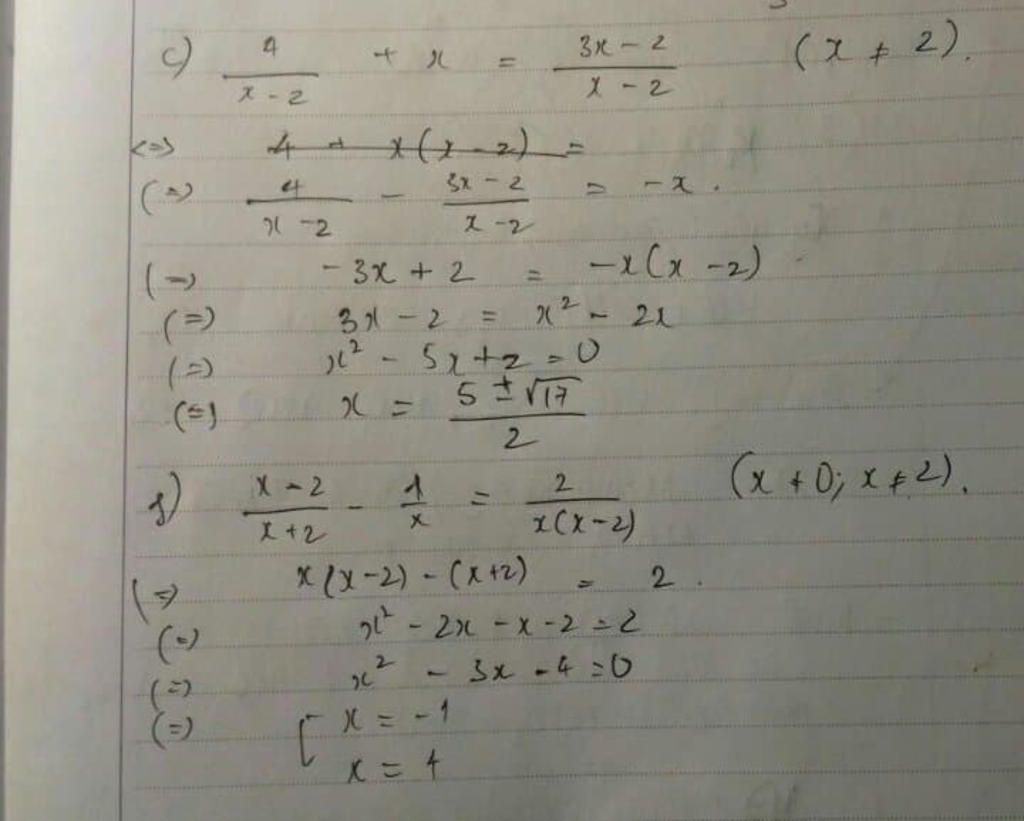 c) 4/(x-2) + x = (3x-2)/(x-2) (x ≠ 2).
<=> 4 + x(x-2) =
(=) 4/(x-2) - (3x-2)/(x-2) = -x.
(=) -3x + 2 = -x(x-2)
(=) 3x - 2 = x² - 2x
(=) x² - 5x + 2 = 0
(=) x = (5 ± √17)/2
f) (x-2)/(x+2) - 1/x = 2/(x(x-2)) (x ≠ 0; x ≠ 2).
(=) x(x-2) - (x+2) = 2.
(=) x² - 2x - x - 2 = 2
(=) x² - 3x - 4 = 0
(=) [ x = -1
x = 4